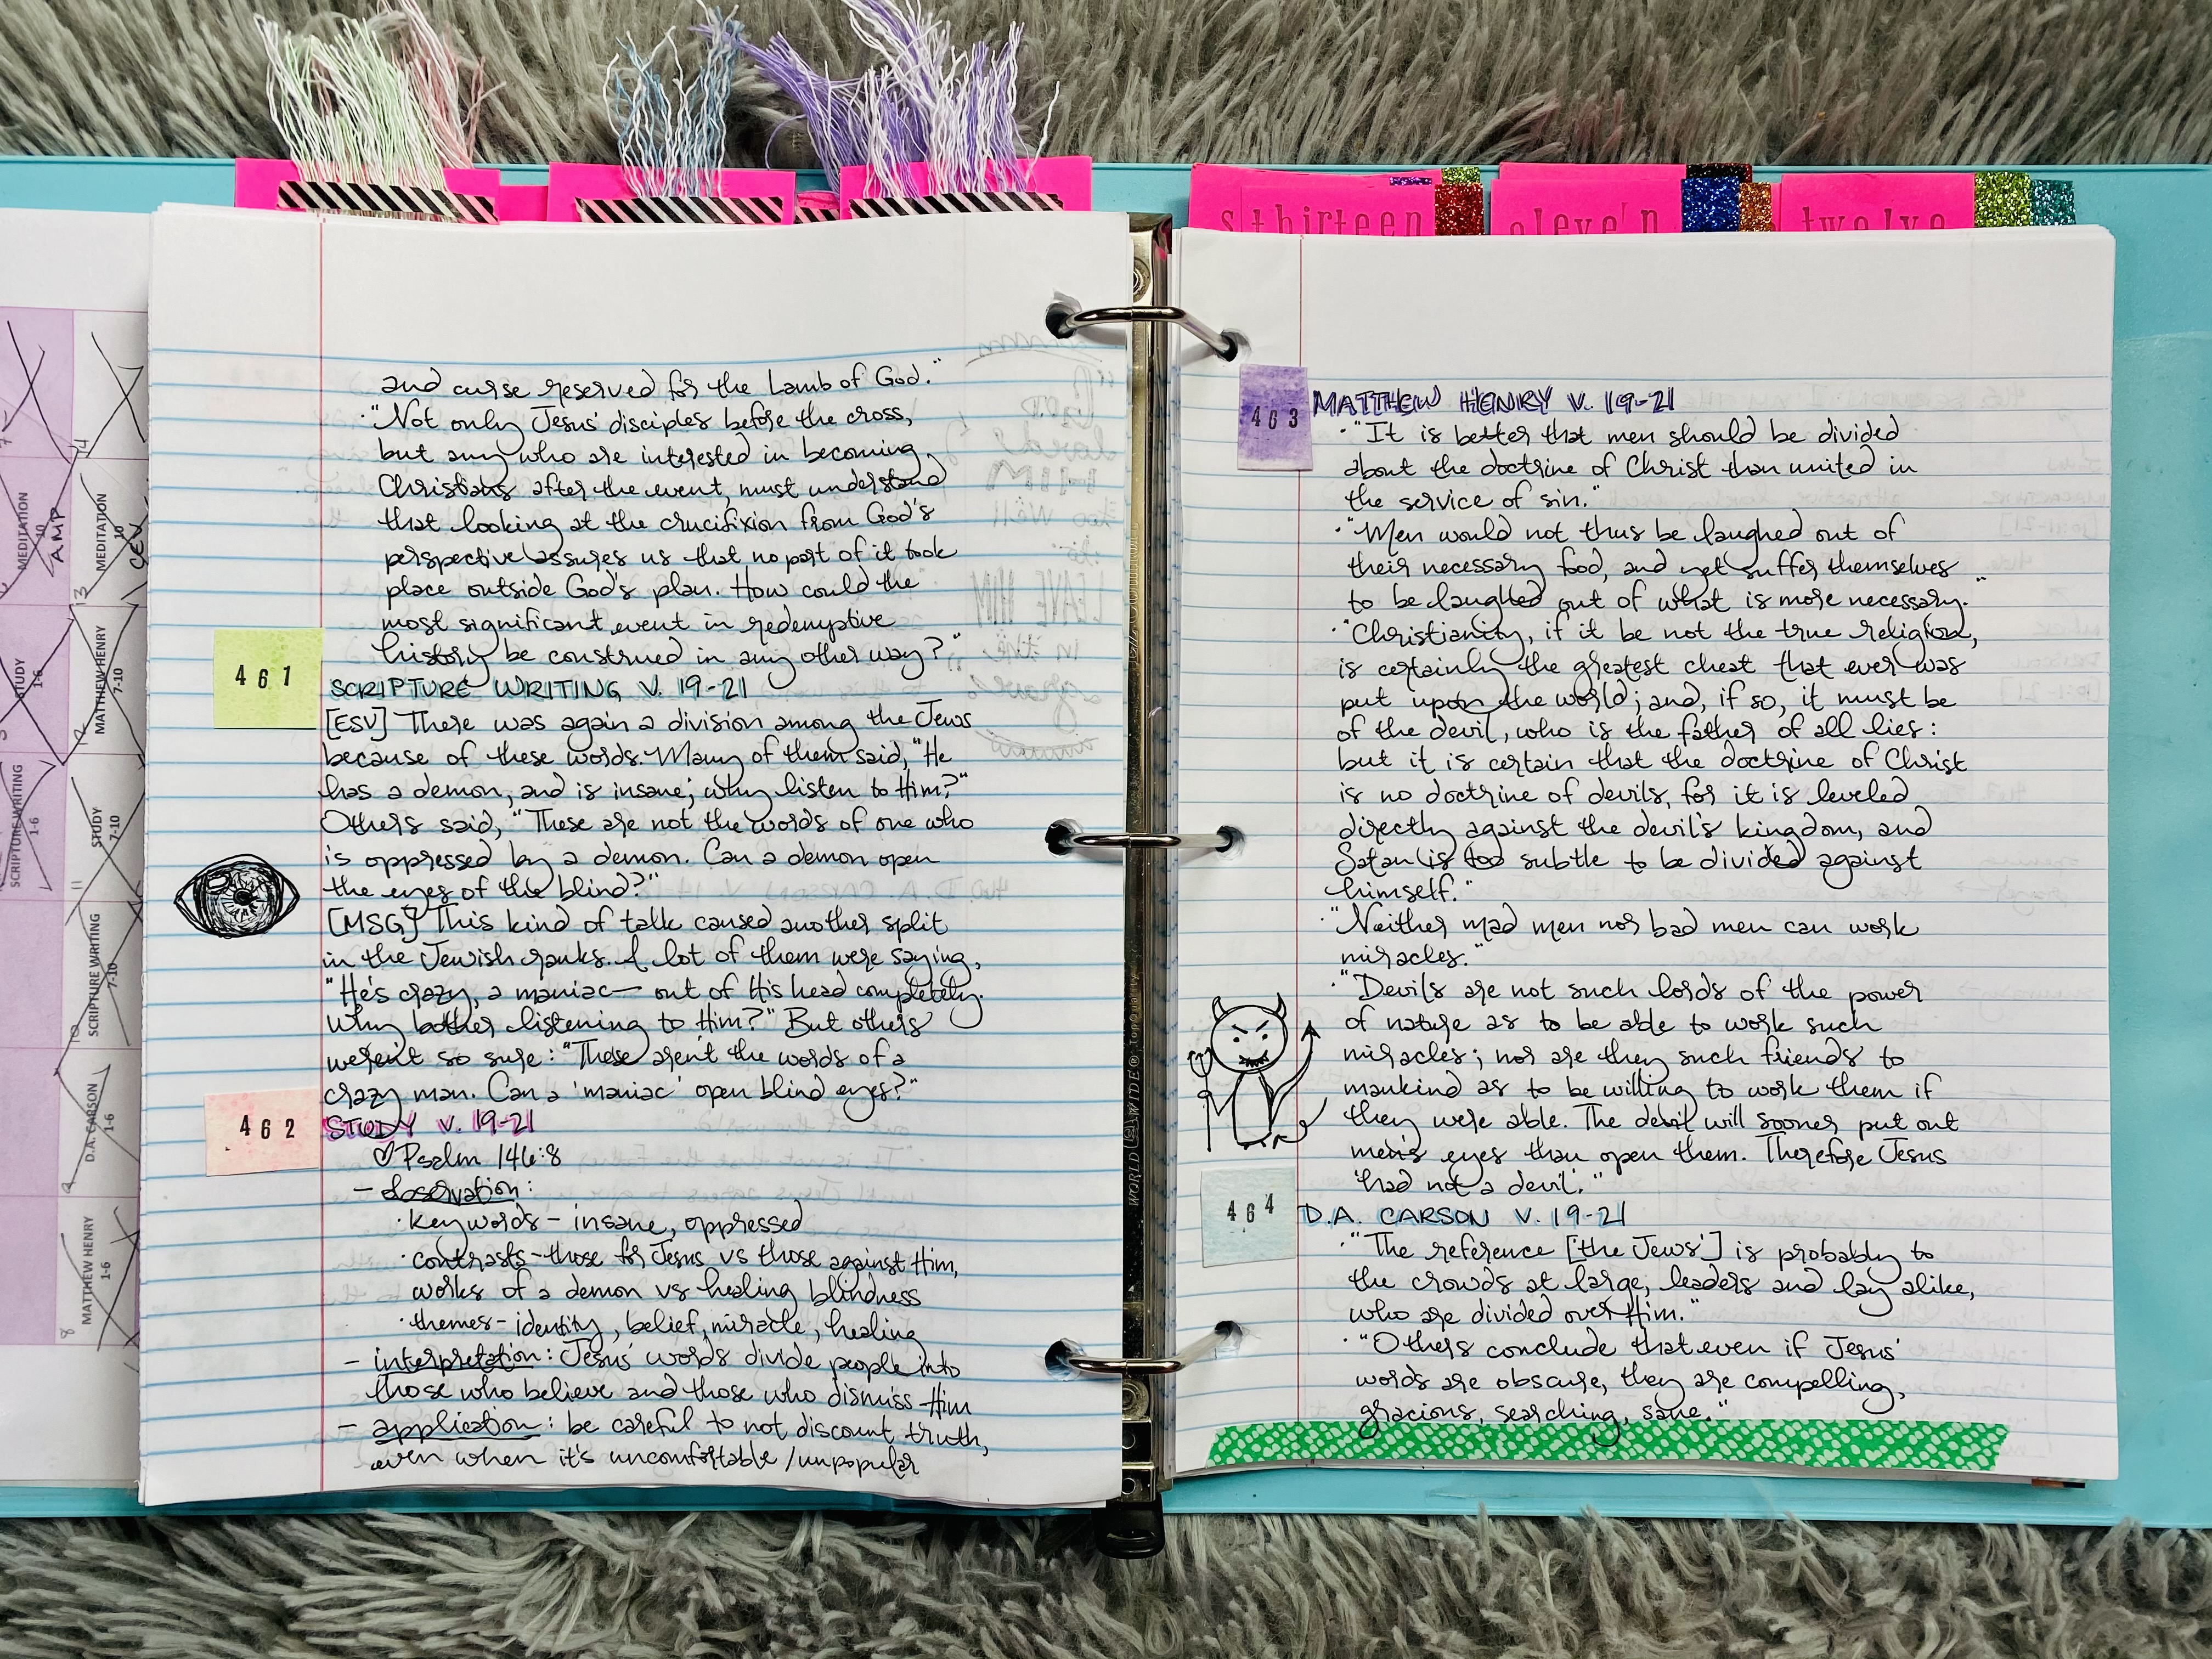 sthirteen
eleven
twelve
MEDITATION
10
AMP
MEDITATION
10
CEV
14
13
STUDY
1-6
MATTHEW HENRY
7-10
12
SCRIPTURE WRITING
1-6
STUDY
7-10
11
SCRIPTURE WRITING
7-10
10
D.A. CARSON
1-6
9
MATTHEW HENRY
1-6
8
and curse reserved for the Lamb of God."
·"Not only Jesus' disciples before the cross,
but any who are interested in becoming
Christians after the event, must understand
that looking at the crucifixion from God's
perspective assures us that no part of it took
place outside God's plan. How could the
most significant event in redemptive
history be construed in any other way?"
461
SCRIPTURE WRITING V. 19-21
[ESV] There was again a division among the Jews
because of these words. Many of them said, "He
has a demon, and is insane; why listen to Him?"
Others said, "These are not the words of one who
is oppressed by a demon. Can a demon open
the eyes of the blind?"
[MSG] This kind of talk caused another split
in the Jewish ranks. A lot of them were saying,
"He's crazy, a maniac— out of His head completely.
Why bother listening to Him?" But others
weren't so sure: "These aren't the words of a
crazy man. Can a 'maniac' open blind eyes?"
462
STUDY V. 19-21
♡Psalm 146:8
- observation:
·keywords - insane, oppressed
·contrasts - those for Jesus vs those against Him,
works of a demon vs healing blindness
·themes - identity, belief, miracle, healing
- interpretation: Jesus' words divide people into
those who believe and those who dismiss Him
- application: be careful to not discount truth,
even when it's uncomfortable/unpopular
463
MATTHEW HENRY V. 19-21
·"It is better that men should be divided
about the doctrine of Christ than united in
the service of sin."
·"Men would not thus be laughed out of
their necessary food, and yet suffer themselves
to be laughed out of what is more necessary."
·"Christianity, if it be not the true religion,
is certainly the greatest cheat that ever was
put upon the world; and, if so, it must be
of the devil, who is the father of all lies:
but it is certain that the doctrine of Christ
is no doctrine of devils, for it is leveled
directly against the devil's kingdom, and
Satan is too subtle to be divided against
himself."
·"Neither mad men nor bad men can work
miracles."
·"Devils are not such lords of the power
of nature as to be able to work such
miracles; nor are they such friends to
mankind as to be willing to work them if
they were able. The devil will sooner put out
men's eyes than open them. Therefore Jesus
had not a devil."
464
D.A. CARSON V. 19-21
·"The reference ['the Jews'] is probably to
the crowds at large, leaders and lay alike,
who are divided over Him."
·"Others conclude that even if Jesus'
words are obscure, they are compelling,
gracious, searching, sane."
WORLD WIDE